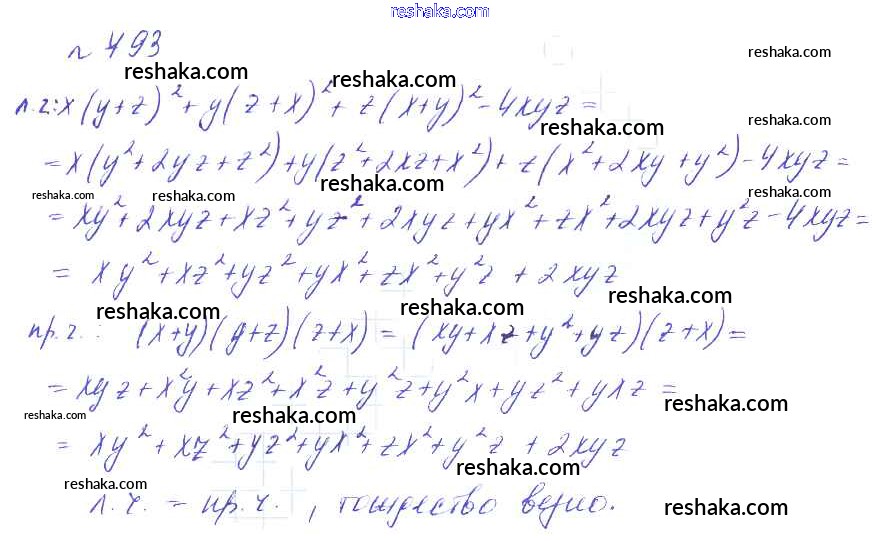 reshaka.com
№ 493
reshaka.com
reshaka.com reshaka.com
л.ч: x(y+z)²+y(z+x)²+z(x+y)²-4xyz=
reshaka.com reshaka.com
=x(y²+2yz+z²)+y(z²+2xz+x²)+z(x²+2xy+y²)-4xyz=
reshaka.com reshaka.com reshaka.com reshaka.com
=xy²+2xyz+xz²+yz²+2xyz+yx²+zx²+2xyz+y²z-4xyz=
= xy²+xz²+yz²+yx²+zx²+y²z+2xyz
reshaka.com reshaka.com reshaka.com
пр.ч.: (x+y)(y+z)(z+x)=(xy+xz+y²+yz)(z+x)=
=xyz+x²y+xz²+x²z+y²z+y²x+yz²+yxz=
reshaka.com reshaka.com reshaka.com
= xy²+xz²+yz²+yx²+zx²+y²z+2xyz
reshaka.com reshaka.com
л.ч. = пр.ч., тождество верно.
reshaka.com